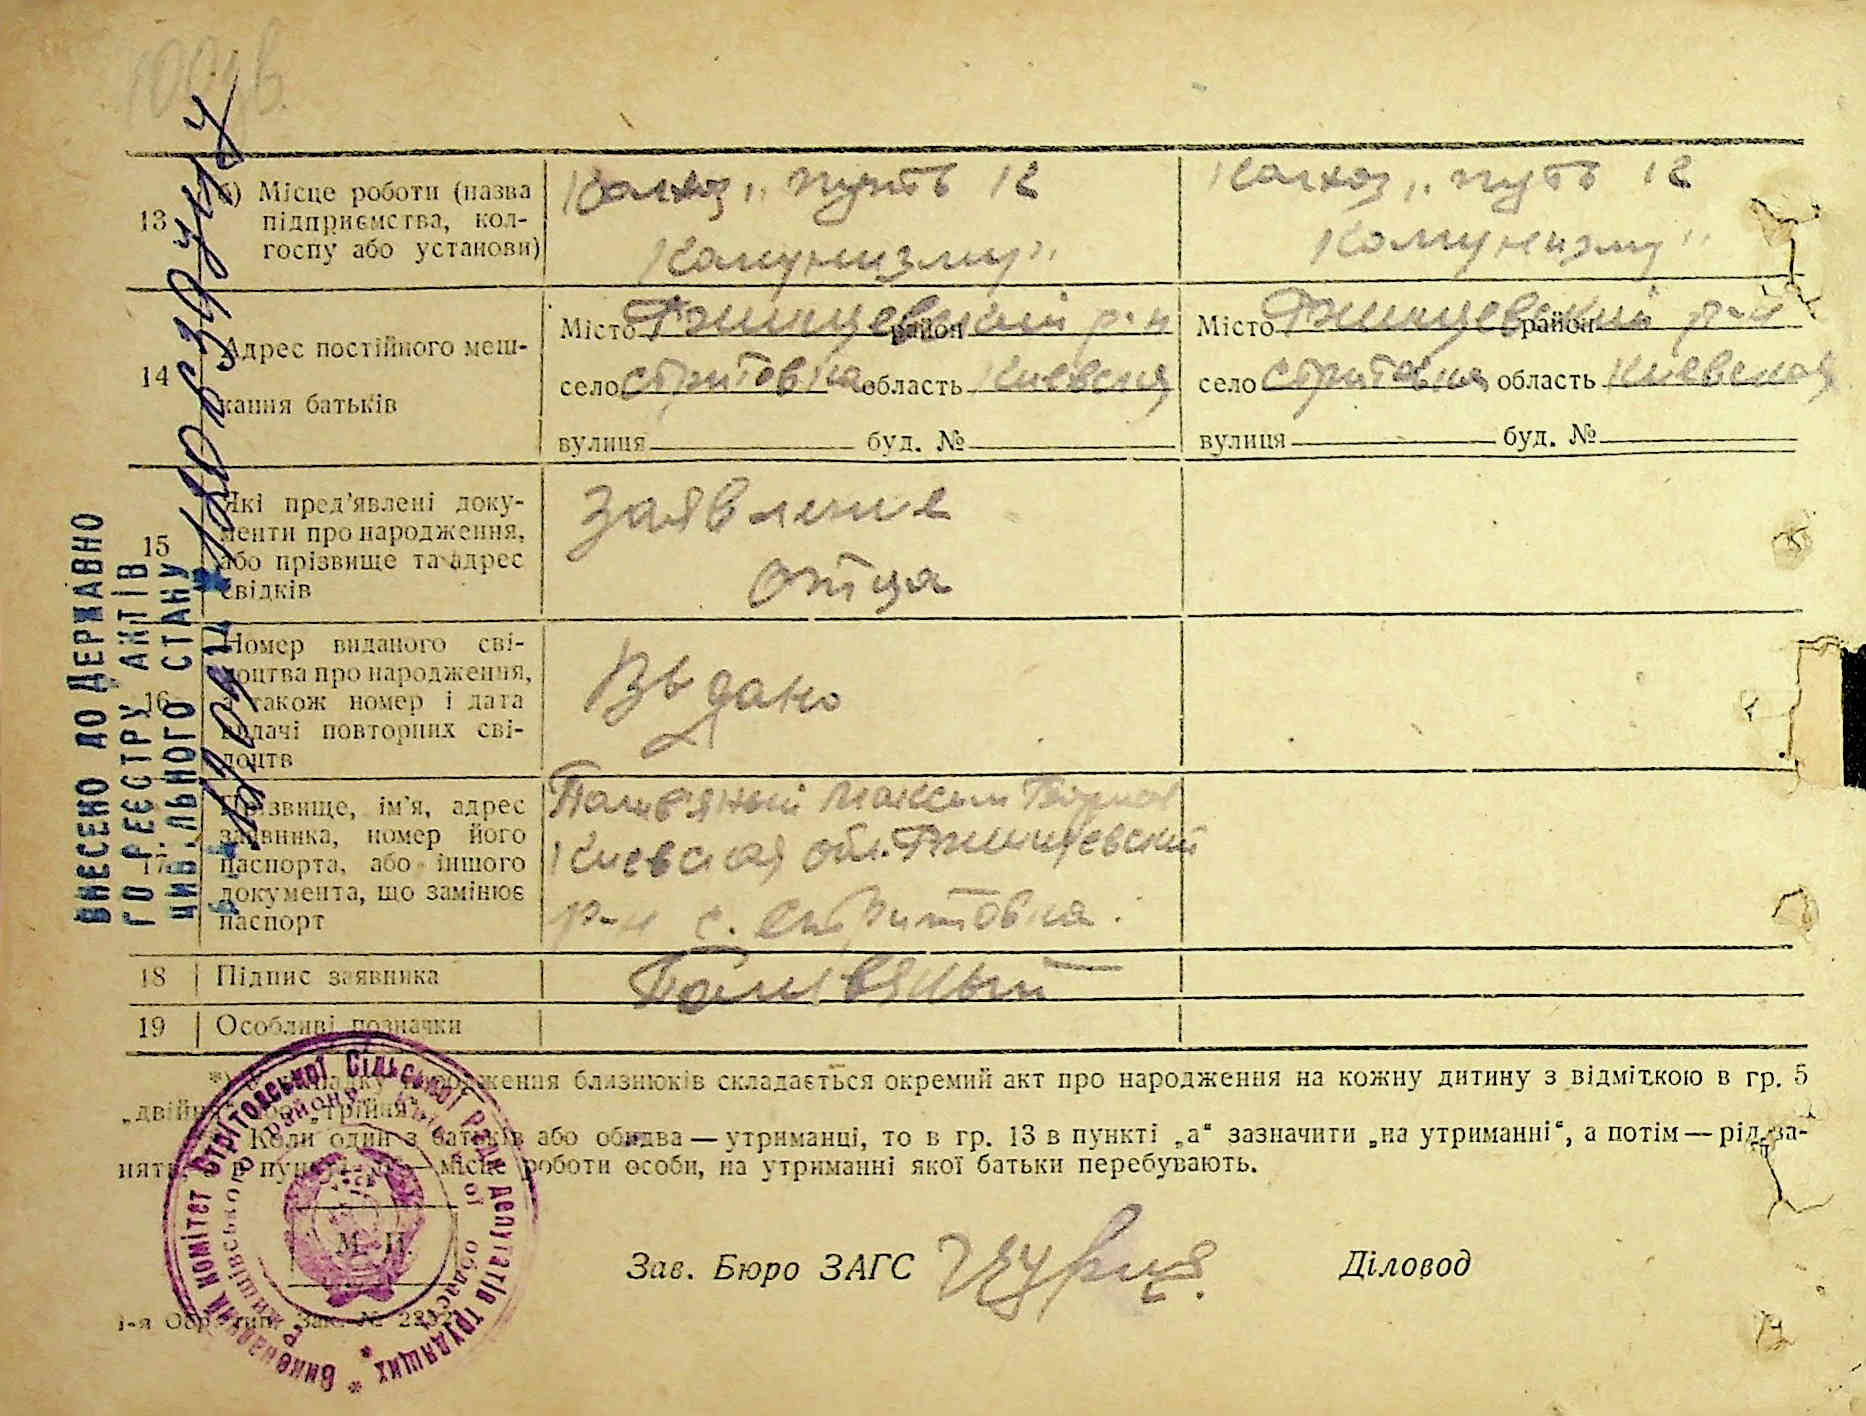 13
б) Місце роботи (назва
підприємства, кол-
госпу або установи)
Колхоз „путь к
Комунизму"
Колхоз „путь к
Комунизму"
14
Адрес постійного меш-
кання батьків
Місто Ржищевский район р-н
село Стритовка область Киевская
вулиця буд. №
Місто Ржищевский район р-н
село Стритовка область Киевская
вулиця буд. №
15
Які пред'явлені доку-
менти про народження,
або прізвище та адрес
свідків
Заявление
отца
16
Номер виданого сві-
доцтва про народження,
а також номер і дата
видачі повторних сві-
доцтв
Выдано
17
Прізвище, ім'я, адрес
заявника, номер його
паспорта, або іншого
документа, що замінює
паспорт
Максим
Киевская обл. Ржищевский
р-н с. Стритовка
18
Підпис заявника
19
Особливі позначки
*) В випадку народження близнюків складається окремий акт про народження на кожну дитину з відміткою в гр. 5
„двійня" або „трійня".
Коли один з батьків або обидва — утриманці, то в гр. 13 в пункті „а" зазначити „на утриманні", а потім — рід за-
няття, а в пункті „б" — місце роботи особи, на утриманні якої батьки перебувають.
М. П.
Зав. Бюро ЗАГС
Діловод
1-я Обр. тип. Зак. №
ВНЕСЕНО ДО ДЕРЖАВНО
ГО РЕЄСТРУ АКТІВ
ЦИВІЛЬНОГО СТАНУ
Виконавчий комітет Стрітовської Сільської Ради депутатів трудящих
Ржищівського району Київської області